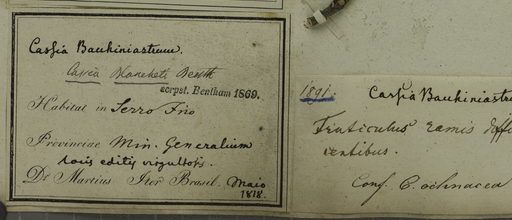 Cassia Bauhiniastrum.
Cassia Blancheti Benth
scrpst. Bentham 1869.
Habitat in Serro Frio
Provinciae Min. Generalium
locis editis virgultosis.
Dr Martius Iter Brasil. Maio
1818.
1891. Cassia Bauhiniastru
Fruticulus ramis diffu
centibus.
Conf. C. ochnacea